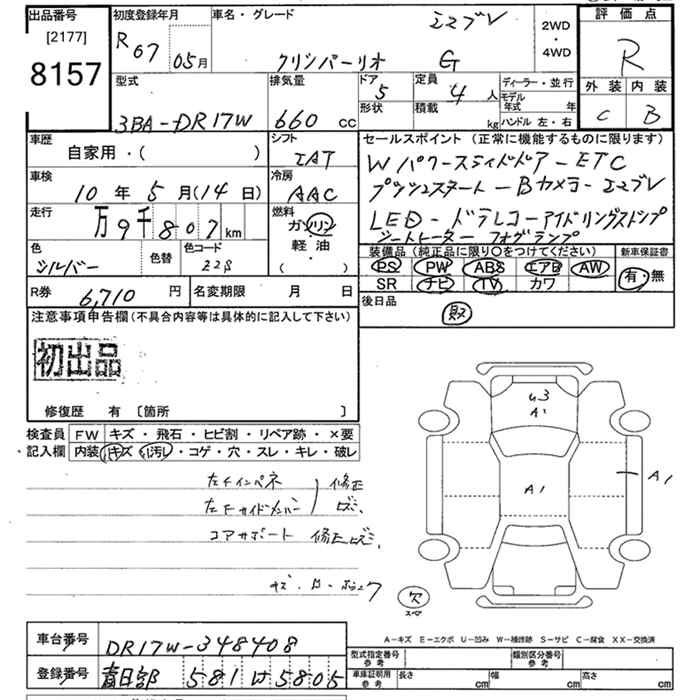 出品番号
[2177]
8157
初度登録年月
R 07 05月
車名・グレード
エブリ
クリッパーリオ G
2WD
・
4WD
評価点
R
外装 内装
C B
型式
3BA-DR17W
排気量
660 cc
ドア
5
形状
定員
4 人
積載
kg
ディーラー・並行
モデル
年式 年
ハンドル 左・右
車歴
自家用・( )
シフト
IAT
車検
10 年 5 月(14 日)
冷房
AAC
走行
万9千807km
燃料
ガソリン
軽油
( )
色
シルバー
色替
色コード
Z2S
R券 6,710 円
名変期限 月 日
セールスポイント(正常に機能するものに限ります)
Wパワースライドドア-ETC
プッシュスタート-Bカメラ-エマブレ
LED-ドラレコ-アイドリングストップ
シートヒーター フォグランプ
装備品(純正品に限り○をつけてください)
PS PW ABS エアB AW
SR ナビ TV カワ
新車保証書
有・無
後日品
取
注意事項申告欄(不具合内容等は具体的に記入して下さい)
初出品
修復歴 有 〔箇所 〕
検査員
記入欄
FW キズ・飛石・ヒビ割・リペア跡・×要
内装 キズ・汚れ・コゲ・穴・スレ・キレ・破レ
左Fインパネ 修正
左Fサイドメンバー ヒズミ、
コアサポート 修正ヒズミ、
U3
A1
A1
A1
欠
スペア
A-キズ E-エクボ U-凹み W-補修跡 S-サビ C-腐食 XX-交換済
車台番号 DR17W-348408
登録番号 春日部 581 は 5805
型式指定番号
参考
類別区分番号
参考
車庫証明用
参考
長さ cm
幅 cm
高さ cm